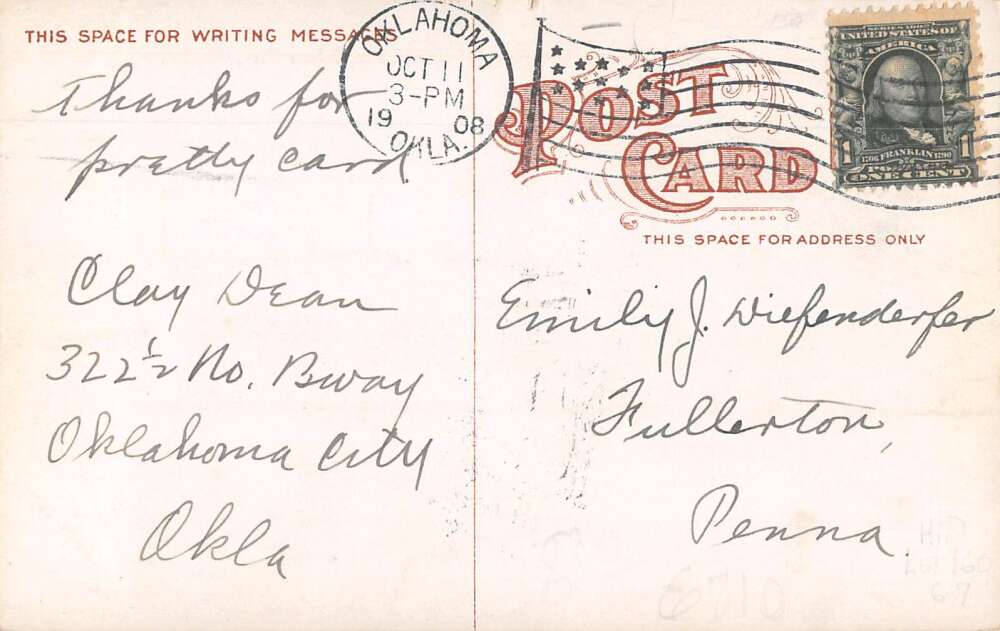 THIS SPACE FOR WRITING MESSAGES
Thanks for
pretty card
Clay Dean
322½ No. Bway
Oklahoma City
Okla
OKLAHOMA
OCT 11
3-PM
1908
OKLA.
POST
CARD
THIS SPACE FOR ADDRESS ONLY
UNITED STATES OF
AMERICA
1706 FRANKLIN 1790
1
ONE CENT
Emily J. Diefenderfer
Fullerton,
Penna